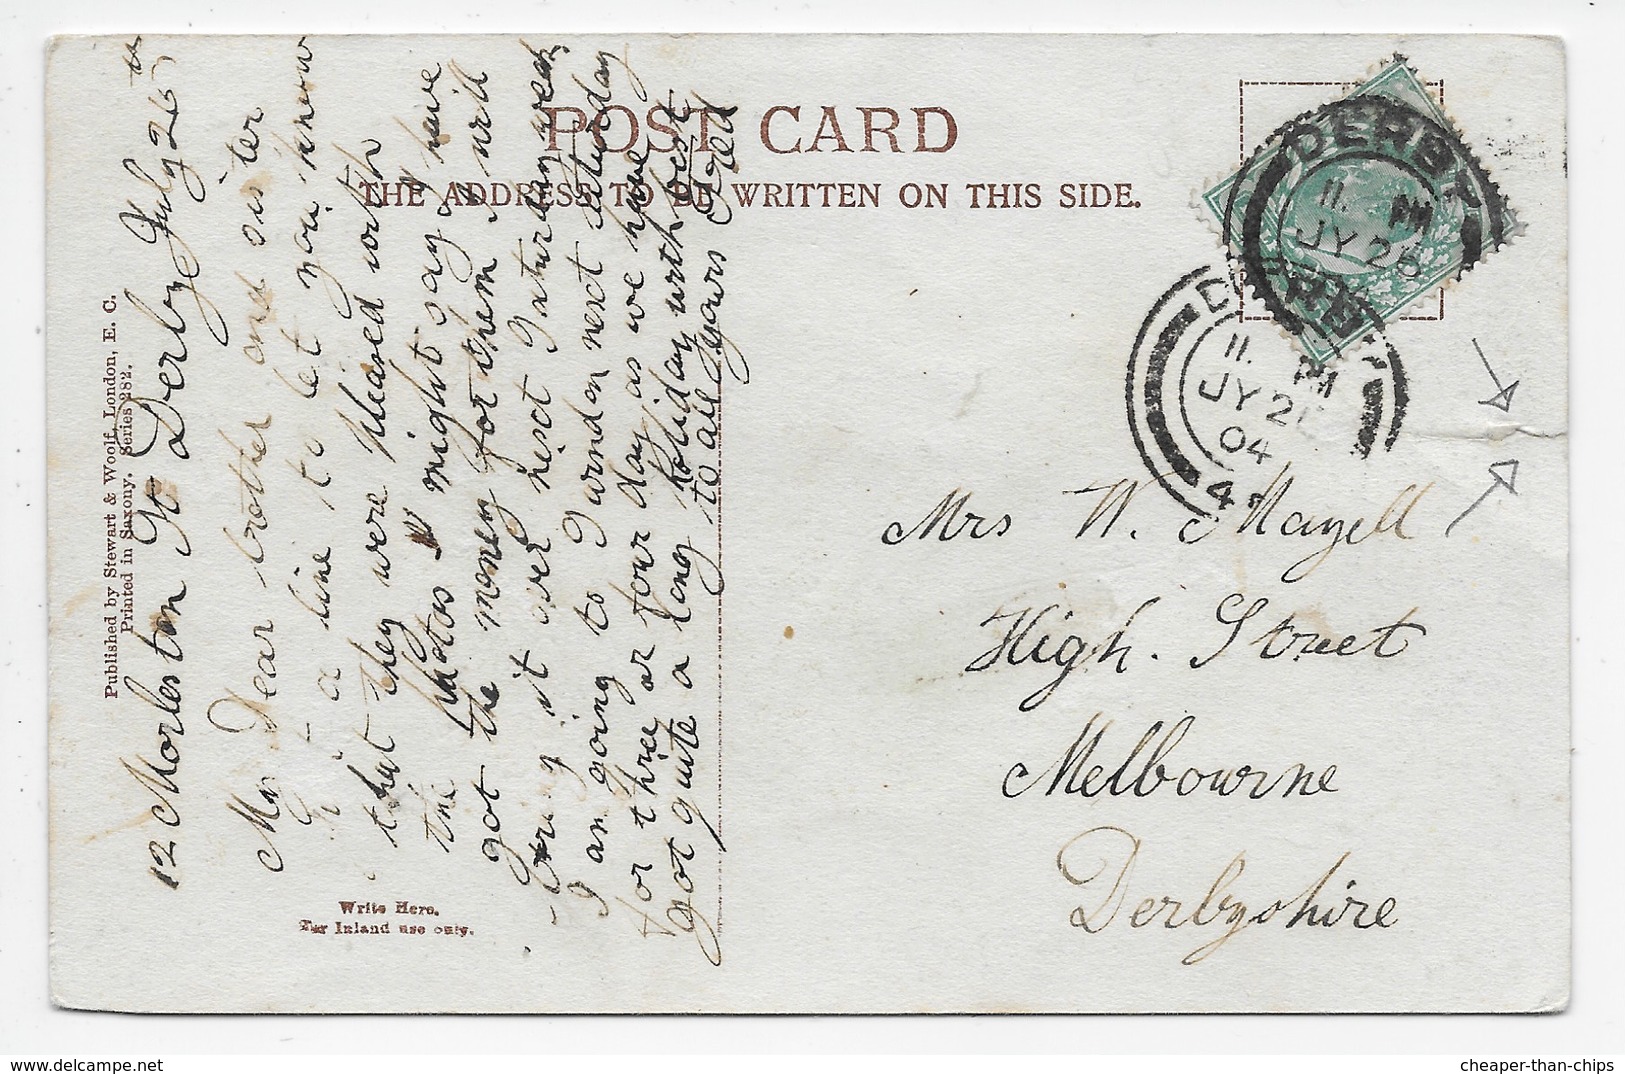 POST CARD
THE ADDRESS TO BE WRITTEN ON THIS SIDE.
Published by Stewart & Woolf, London, E. C.
Printed in Saxony. Series 282.
12 Morleston St Derby July 26th
My Dear brother and sister
a line to let you know
that they were pleased with
the photos & might say I have
got the money for them I will
bring it over next Saturday week
I am going to Swindon next Saturday
for three or four day as we have
got quite a long holiday with best
to all yours Fred
Write Here.
For Inland use only.
DERBY
11. PM
JY 26
DERBY
11. PM
JY 26
04
4
Mrs W. Mayell
High. Street
Melbourne
Derbyshire
cheaper-than-chips